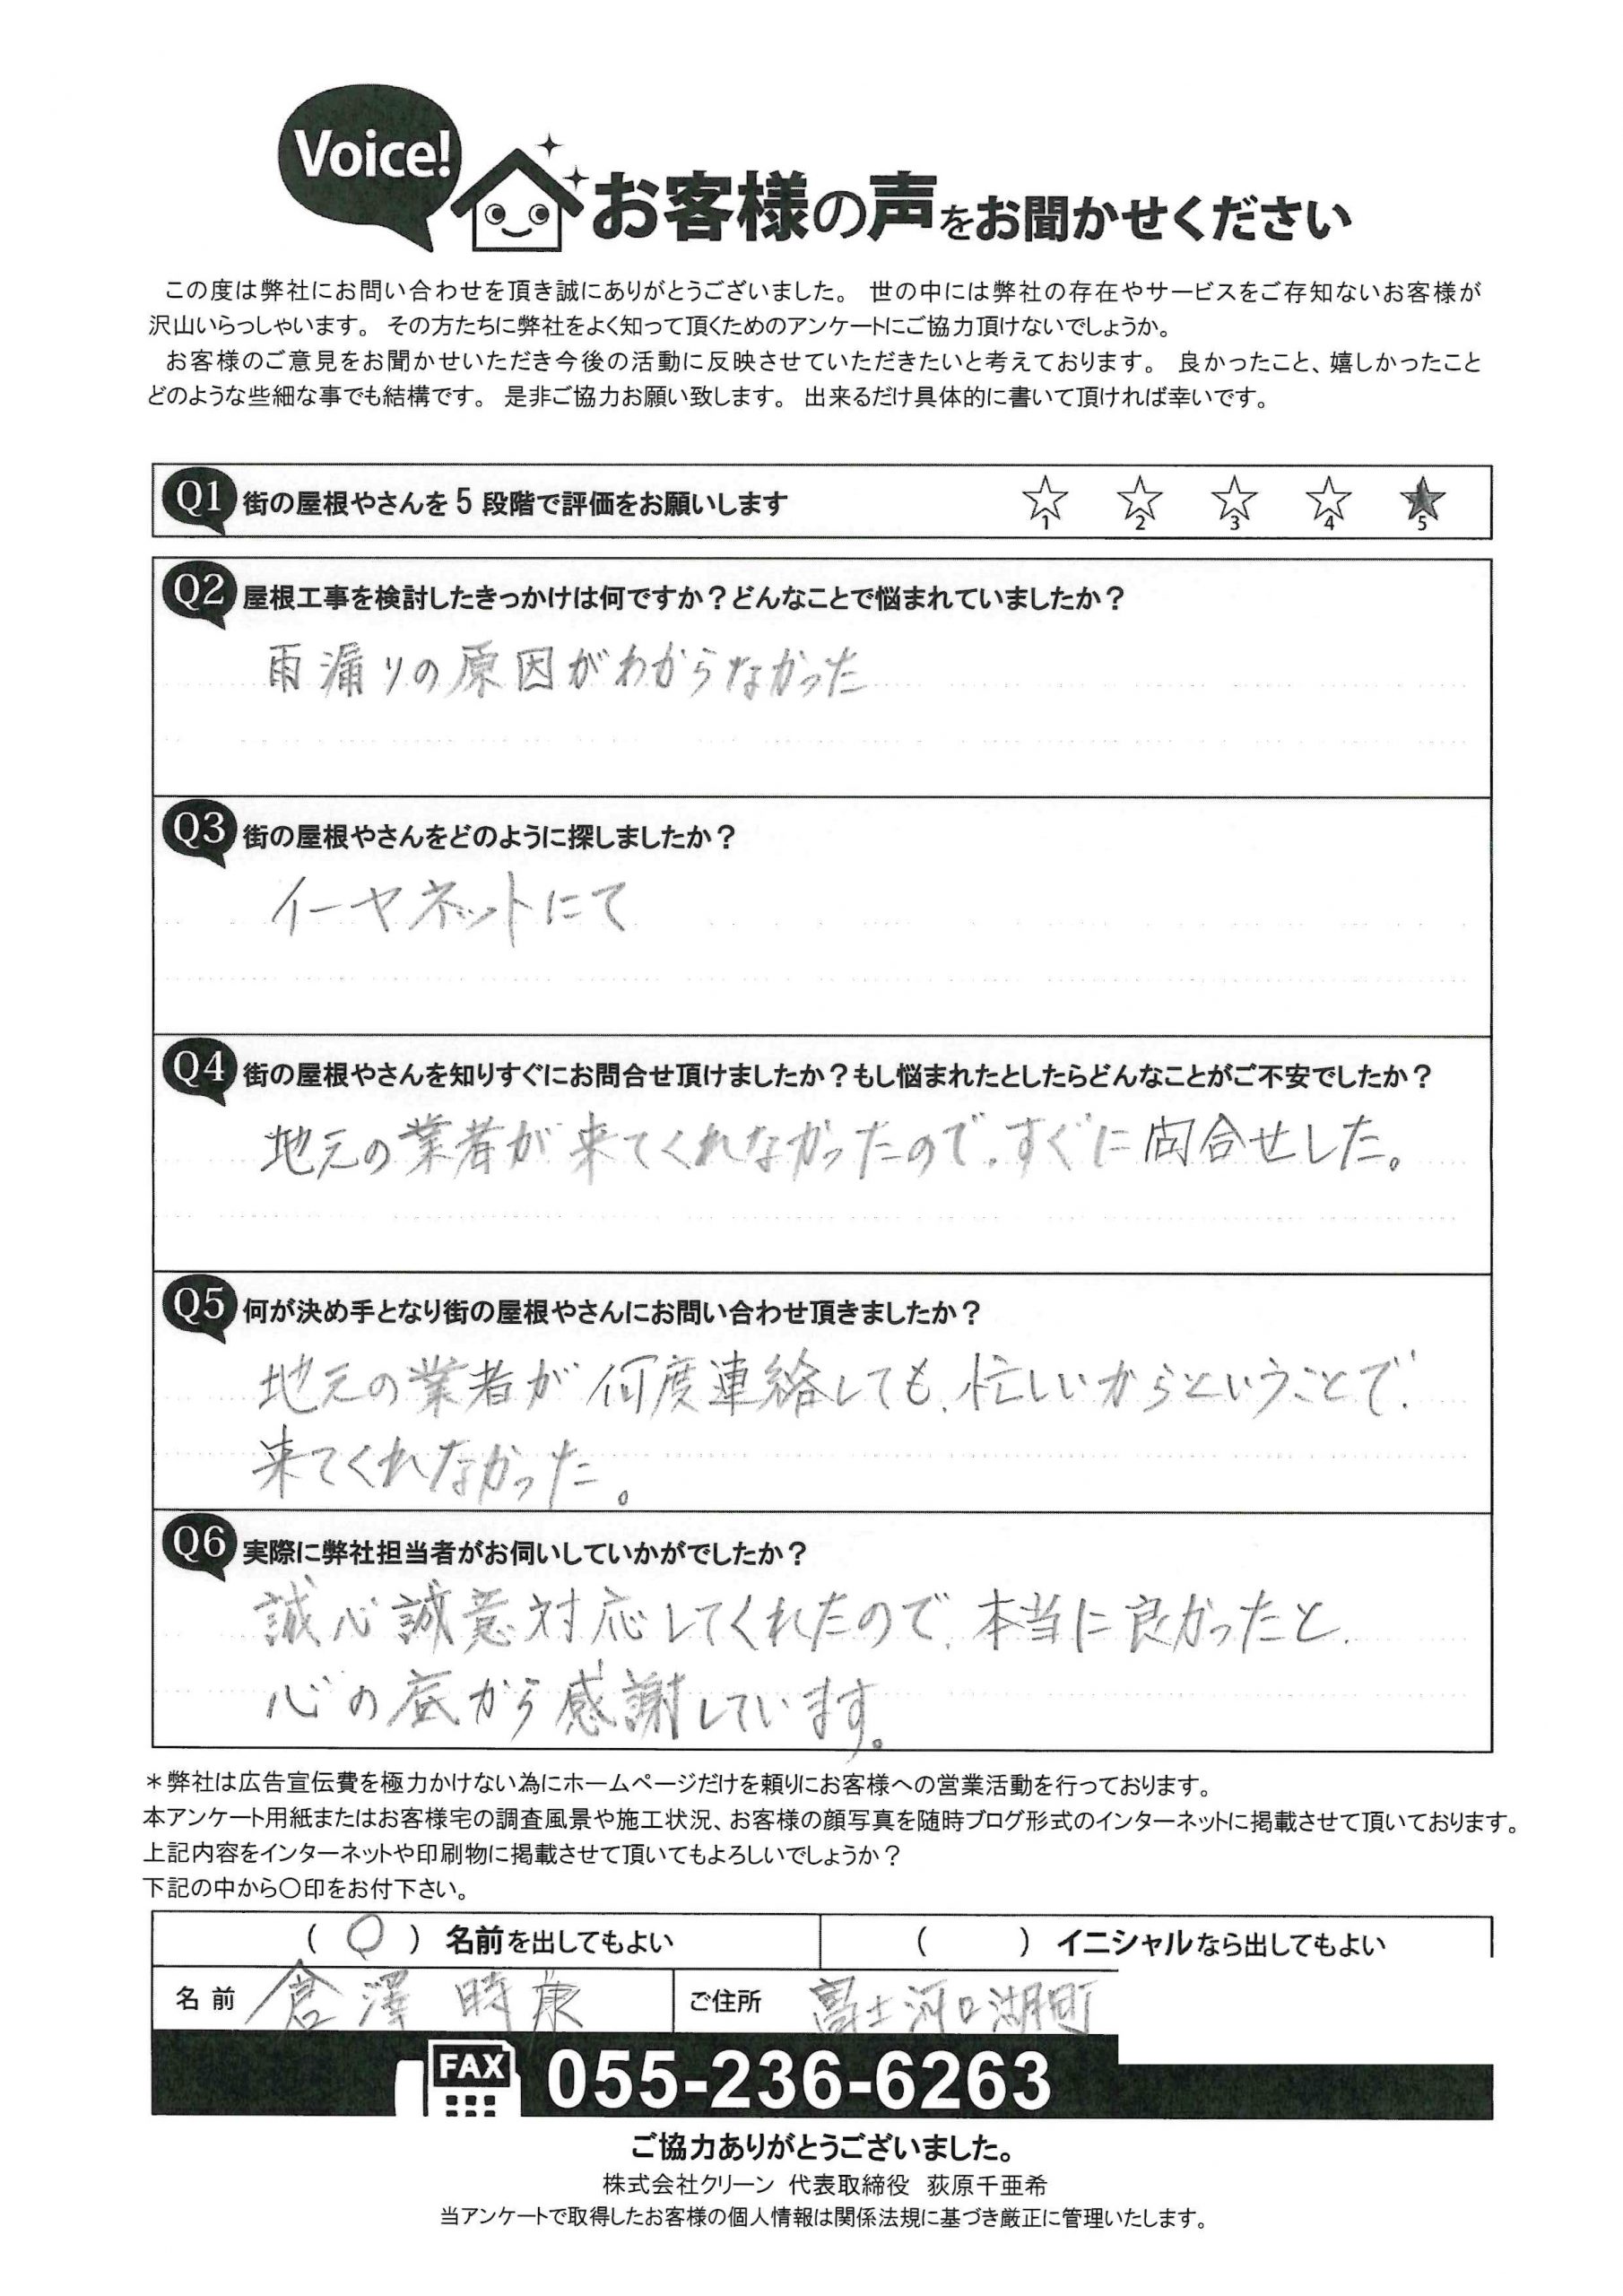 Voice!
お客様の声をお聞かせください
この度は弊社にお問い合わせを頂き誠にありがとうございました。 世の中には弊社の存在やサービスをご存知ないお客様が
沢山いらっしゃいます。 その方たちに弊社をよく知って頂くためのアンケートにご協力頂けないでしょうか。
お客様のご意見をお聞かせいただき今後の活動に反映させていただきたいと考えております。 良かったこと、嬉しかったこと
どのような些細な事でも結構です。 是非ご協力お願い致します。 出来るだけ具体的に書いて頂ければ幸いです。
Q1 街の屋根やさんを5段階で評価をお願いします ☆1 ☆2 ☆3 ☆4 ★5
Q2 屋根工事を検討したきっかけは何ですか？どんなことで悩まれていましたか？
雨漏りの原因がわからなかった
Q3 街の屋根やさんをどのように探しましたか？
イーヤネットにて
Q4 街の屋根やさんを知りすぐにお問合せ頂けましたか？もし悩まれたとしたらどんなことがご不安でしたか？
地元の業者が来てくれなかったので、すぐに問合せした。
Q5 何が決め手となり街の屋根やさんにお問い合わせ頂きましたか？
地元の業者が何度連絡しても、忙しいからということで、
来てくれなかった。
Q6 実際に弊社担当者がお伺いしていかがでしたか？
誠心誠意対応してくれたので、本当に良かったと、
心の底から感謝しています。
＊弊社は広告宣伝費を極力かけない為にホームページだけを頼りにお客様への営業活動を行っております。
本アンケート用紙またはお客様宅の調査風景や施工状況、お客様の顔写真を随時ブログ形式のインターネットに掲載させて頂いております。
上記内容をインターネットや印刷物に掲載させて頂いてもよろしいでしょうか？
下記の中から〇印をお付下さい。
（ 〇 ）名前を出してもよい （ ）イニシャルなら出してもよい
名前 倉澤 時康 ご住所 富士河口湖町
FAX 055-236-6263
ご協力ありがとうございました。
株式会社クリーン 代表取締役 荻原千亜希
当アンケートで取得したお客様の個人情報は関係法規に基づき厳正に管理いたします。